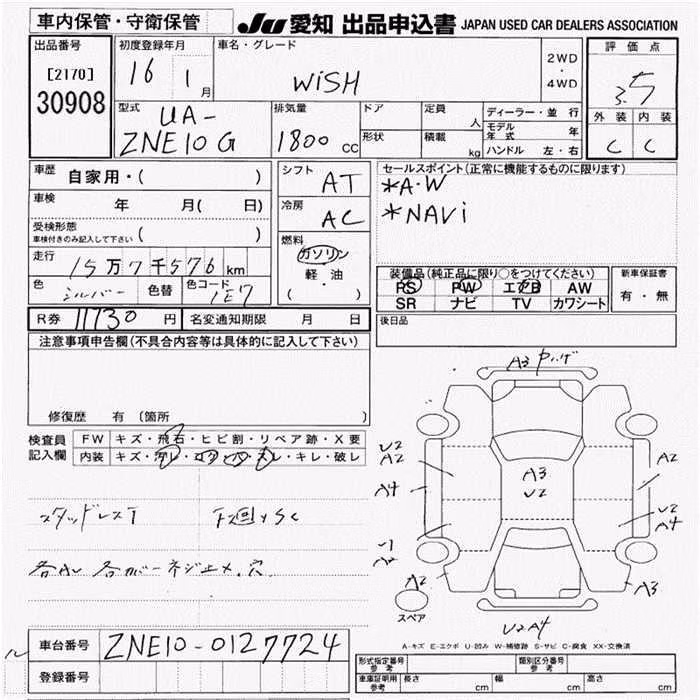 車内保管・守衛保管
JU 愛知 出品申込書 JAPAN USED CAR DEALERS ASSOCIATION
出品番号
[2170]
30908
初度登録年月
16 1月
車名・グレード
WiSH
2WD
・
4WD
評価点
3.5
外装 内装
C C
型式
UA-
ZNE10G
排気量
1800 cc
ドア
形状
定員 人
積載 kg
ディーラー・並行
モデル年式 年
ハンドル 左・右
車歴 自家用・( )
車検 年 月(日)
受検形態
車検付きのみ記入して下さい ( )
走行 15万7千576km
色 シルバー 色替 色コード 1E7
シフト AT
冷房 AC
燃料
ガソリン
軽・油
( )
セールスポイント(正常に機能するものに限ります)
*A・W
*NAVi
装備品(純正品に限り○をつけてください)
PS PW エアB AW
SR ナビ TV カワシート
新車保証書
有・無
R券 11730 円 名変通知期限 月 日
後日品
注意事項申告欄(不具合内容等は具体的に記入して下さい)
修復歴 有〔箇所 〕
検査員記入欄
FW キズ・飛石・ヒビ割・リペア跡・X要
内装 キズ・汚レ・コゲ・穴・スレ・キレ・破レ
スタッドレスT 下廻りSC
A3
U2
A2
A4
U2
A2
A3
U2
A2
U2
A4
U1
A2
A2
A3
スペア
U2A4
A-キズ E-エクボ U-凹み W-補修跡 S-サビ C-腐食 XX-交換済
車台番号 ZNE10-0127724
登録番号
形式指定番号 参考
類別区分番号 参考
車庫証明用 参考 長さ cm 幅 cm 高さ cm